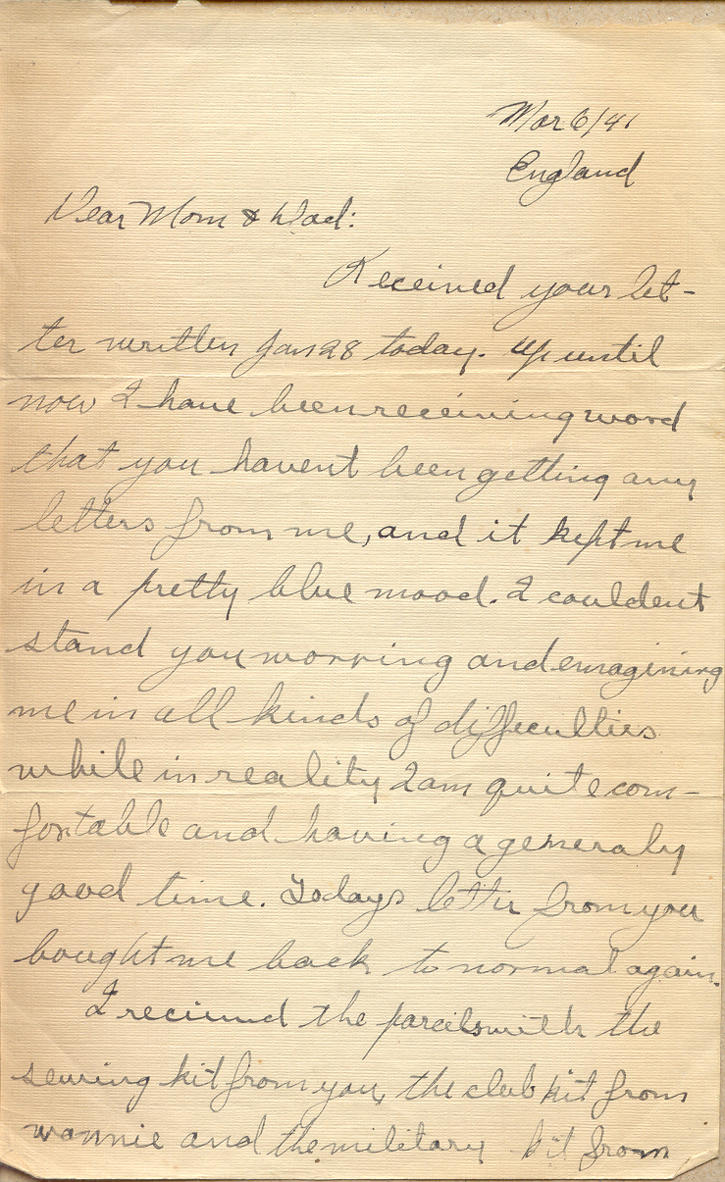 Mar 6/41
England
Dear Mom & Dad:
Received your let-
ter written Jan 28 today. Up until
now I have been receiving word
that you havent been getting any
letters from me, and it kept me
in a pretty blue mood. I couldent
stand you worring and emagining
me in all kinds of difficulties
while in reality I am quite com-
fortable and having a generaly
good time. Todays letter from you
bought me back to normal again.
I recieved the parcels with the
sewing kit from you, the club kit from
wannie and the military kit from